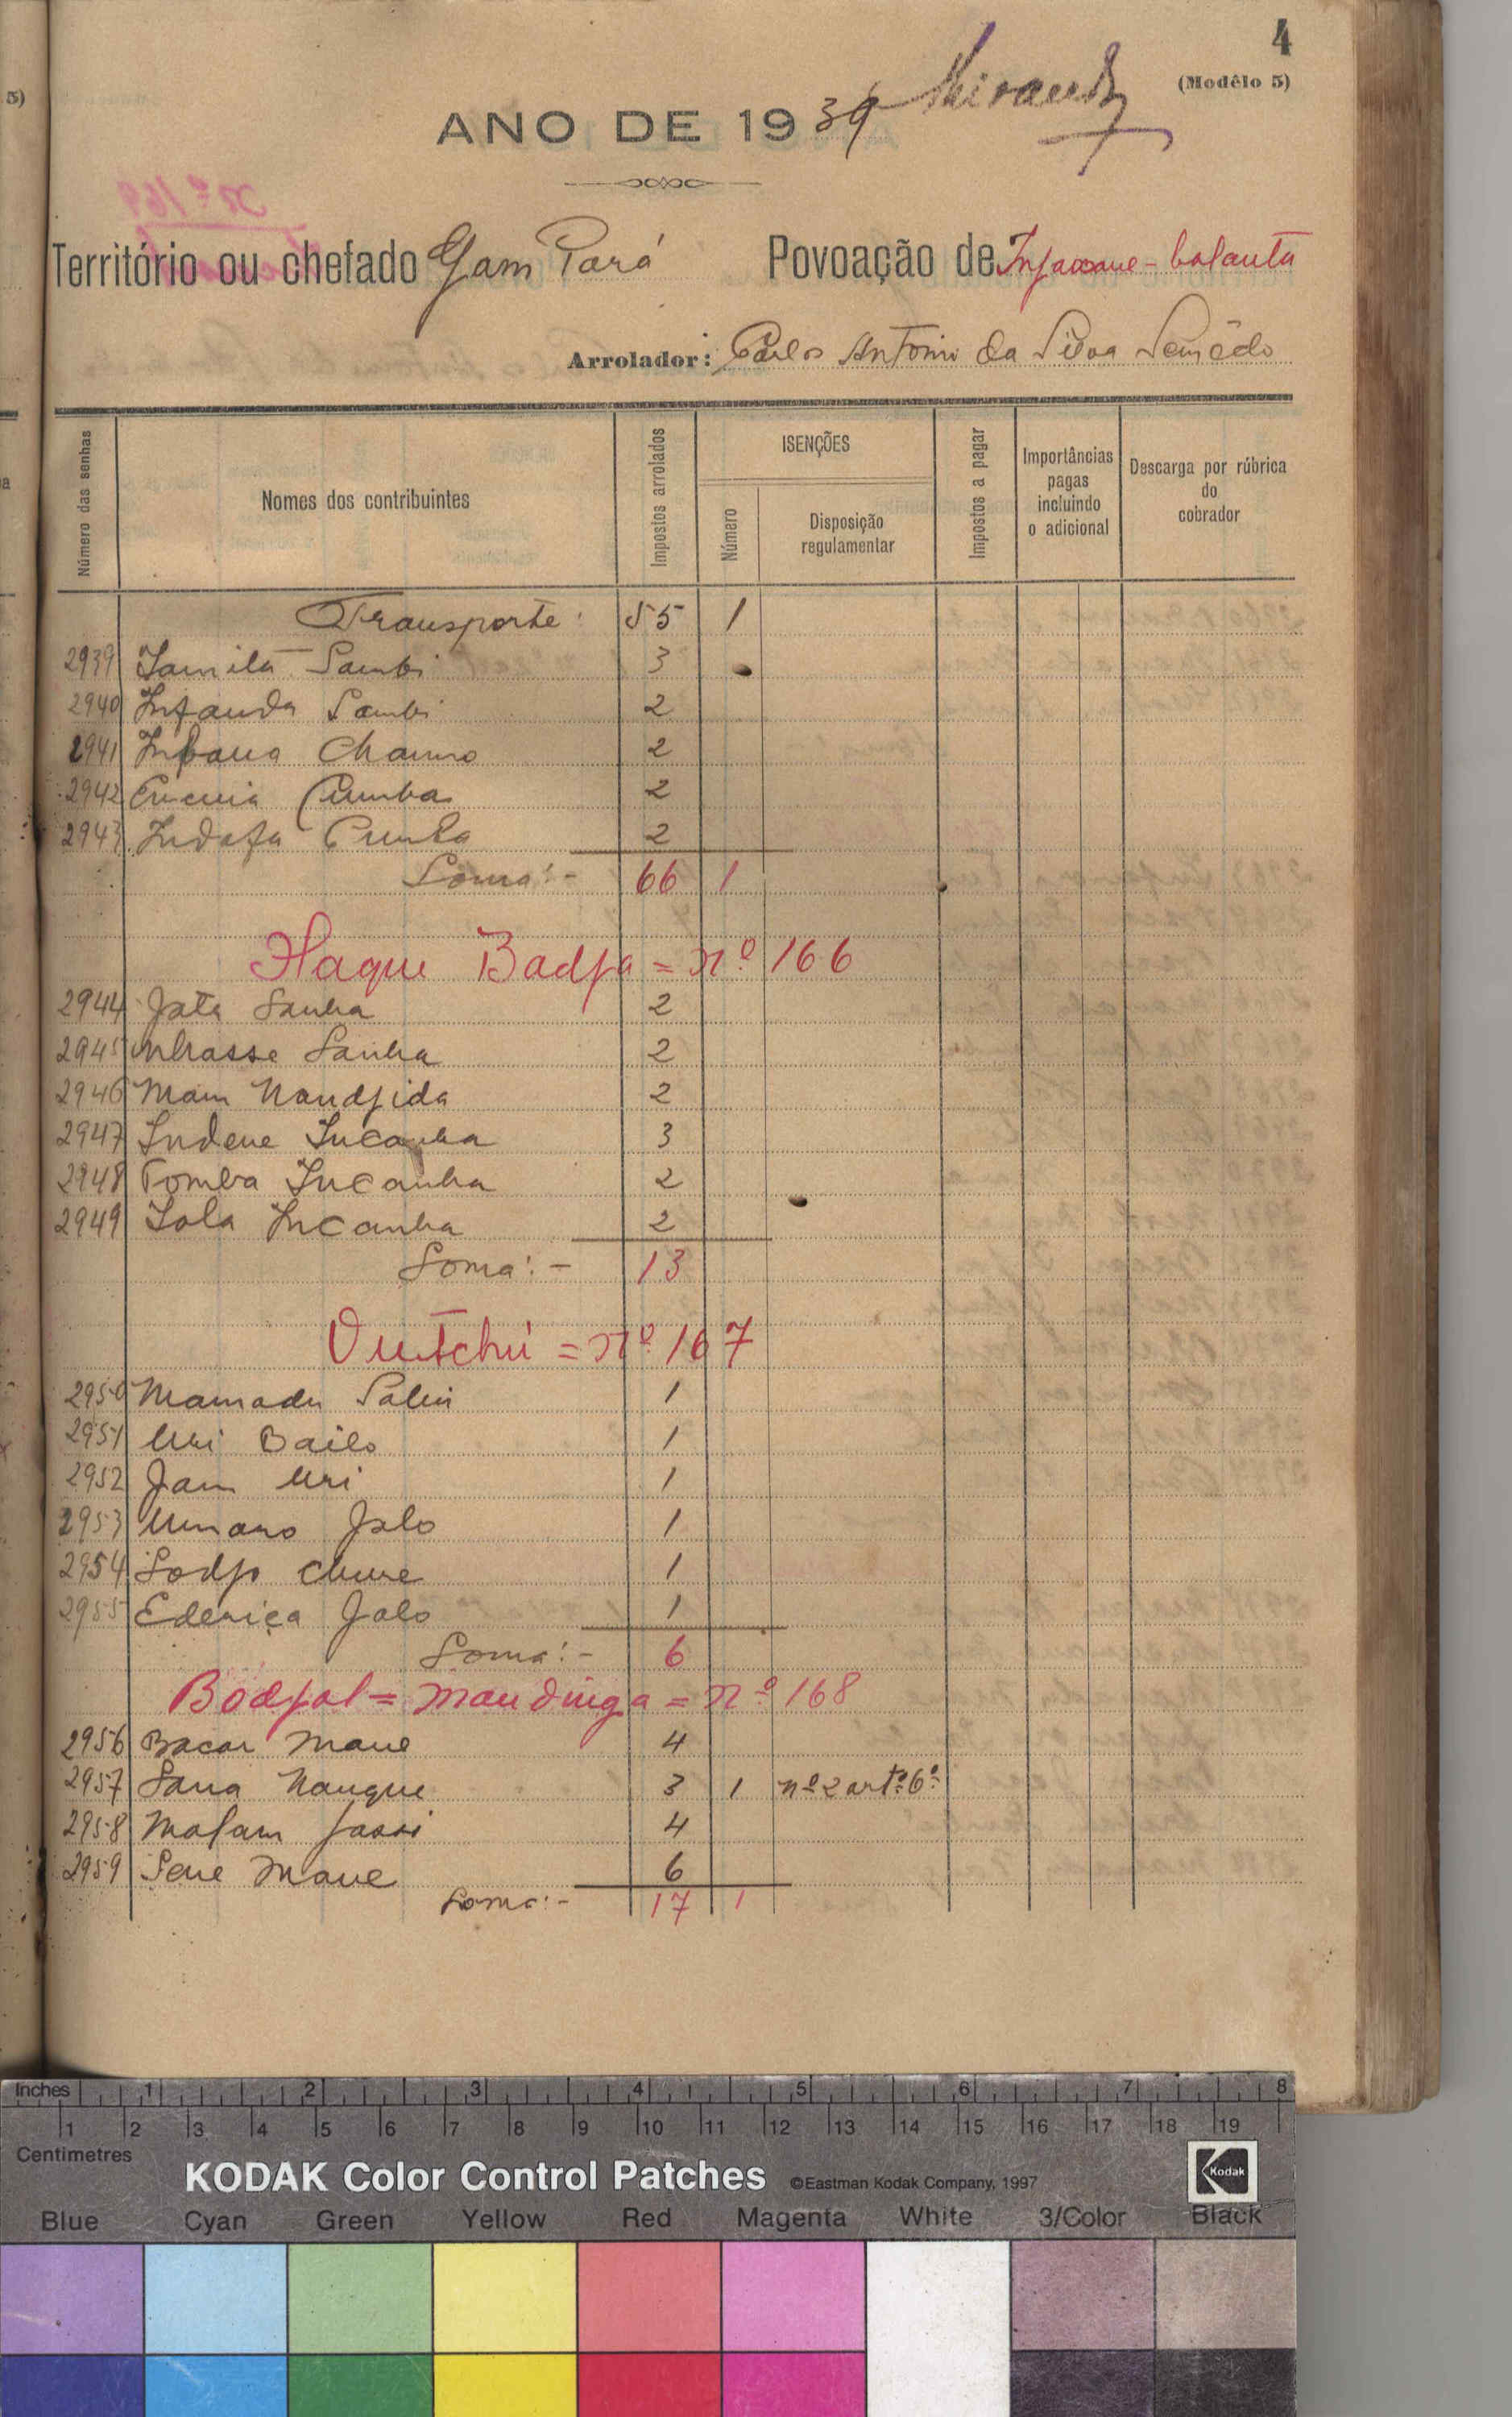 4
(Modêlo 5)
ANO DE 1939
Território ou chefado Gam Pará Povoação de Infaxane - balanta
Arrolador: Carlos Antonio da Silva Semêdo
Número das senhas
Nomes dos contribuintes
Impostos arrolados
ISENÇÕES
Número
Disposição regulamentar
Impostos a pagar
Importâncias pagas incluindo o adicional
Descarga por rúbrica do cobrador
Transporte: 55 1
2939 Sambi 3
2940 Infanda Sambi 2
2941 2
2942 Cumba 2
2943 Indafa Cumba 2
Soma:- 66 1
Flaque Badja = nº 166
2944 Jata Sanha 2
2945 Sanha 2
2946 Mam Nandjida 2
2947 Indene Incanha 3
2948 Tomba Incanha 2
2949 Incanha 2
Soma:- 13
nº 167
2950 Mamadu Saliu 1
2951 Bailo 1
2952 Jam Uri 1
2953 Umaro Jalo 1
2954 Sodjo 1
2955 Jalo 1
Soma:- 6
Bodjol = mandinga = nº 168
2956 Bacar Mane 4
2957 Sana Nanque 3 1 nº 2 artº 6º
2958 Malam Jassi 4
2959 Sene Mane 6
Soma:- 17 1
Inches 1 2 3 4 5 6 7 8
1 2 3 4 5 6 7 8 9 10 11 12 13 14 15 16 17 18 19
Centimetres
KODAK Color Control Patches ©Eastman Kodak Company, 1997 Kodak
Blue Cyan Green Yellow Red Magenta White 3/Color Black